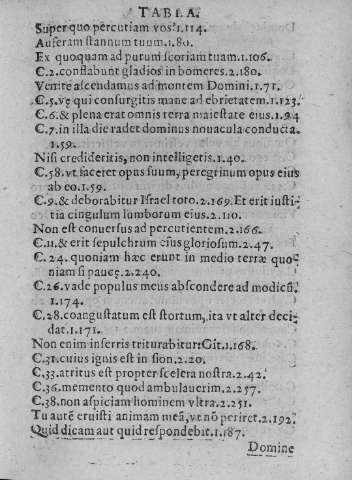 TABLA.
Super quo percutiam vos. 1.114.
Auferam stannum tuum. 1.80.
Ex quo quam ad putum scoriam tuam. 1.106.
C.2. constabunt gladios in bomeres. 2.180.
Venite ascendamus ad montem Domini. 1.71.
C.5. ve qui consurgitis mane ad ebrietatem. 1.123.
C.6. & plena erat omnis terra maiestate eius. 1.94
C.7. in illa die radet dominus nouacula conducta.
1.59.
Nisi credideritis, non intelligetis. 1.40.
C.58. vt faceret opus suum, peregrinum opus eius
ab eo. 1.59.
C.9. & deborabitur Israel toto. 2.169. Et erit iusti-
tia cingulum lumborum eius. 2.110.
Non est conuersus ad percutientem. 2.166.
C.11. & erit sepulchrum eius gloriosum. 2.47.
C. 24. quoniam hæc erunt in medio terræ quo-
niam si pauce. 2.240.
C.26. vade populus meus abscondere ad modicũ.
1.174.
C.28. coangustatum est stortum, ita vt alter deci-
dat. 1.171.
Non enim in serris triturabitur: Git. 1.168.
C.31. cuius ignis est in sion. 2.20.
C.33. atritus est propter scelera nostra. 2.42.
C.36. memento quod ambulauerim. 2.257.
C.38. non aspiciam hominem vltra. 2.251.
Tu autẽ eruisti animam meã, vt nõ periret. 2.192.
Quid dicam aut quid respondebit. 1.187.
Domine